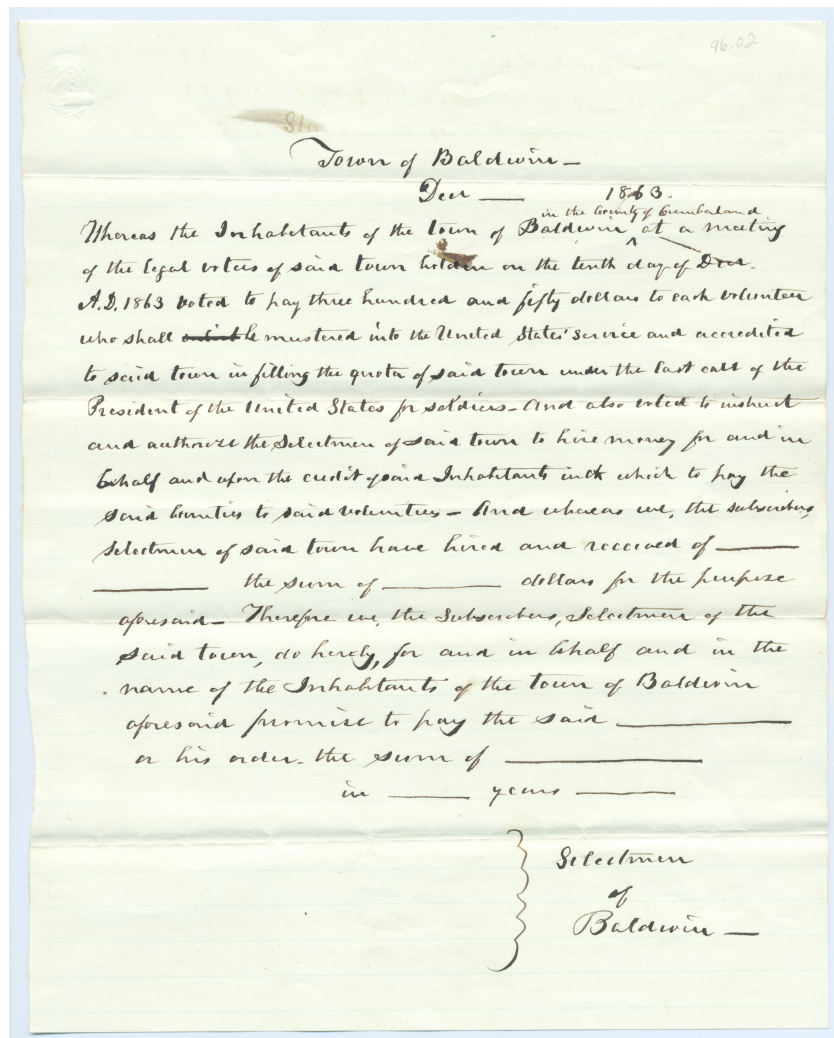 96.02
Town of Baldwin —
Decr — 1863.
in the County of Cumberland
Whereas the Inhabitants of the town of Baldwin ^ at a meeting
of the legal voters of said town holden on the tenth day of Decr.
A.D. 1863 voted to pay three hundred and fifty dollars to each volunteer
who shall be mustered into the United States' service and accredited
to said town in filling the quota of said town under the last call of the
President of the United States for soldiers – And also voted to instruct
and authorize the Selectmen of said town to hire money for and in
behalf and upon the credit of said Inhabitants with which to pay the
said bounties to said volunteers – And whereas we, the subscribers,
Selectmen of said town have hired and received of ———
——— the sum of ——— dollars for the purpose
aforesaid – Therefore we, the Subscribers, Selectmen of the
said town, do hereby, for and in behalf and in the
name of the Inhabitants of the town of Baldwin
aforesaid promise to pay the said ———
or his order – the sum of ———
in ——— years ———
Selectmen
of
Baldwin —